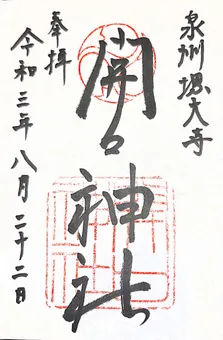 泉州堺大寺
開口神社
奉拝
令和三年八月二十二日